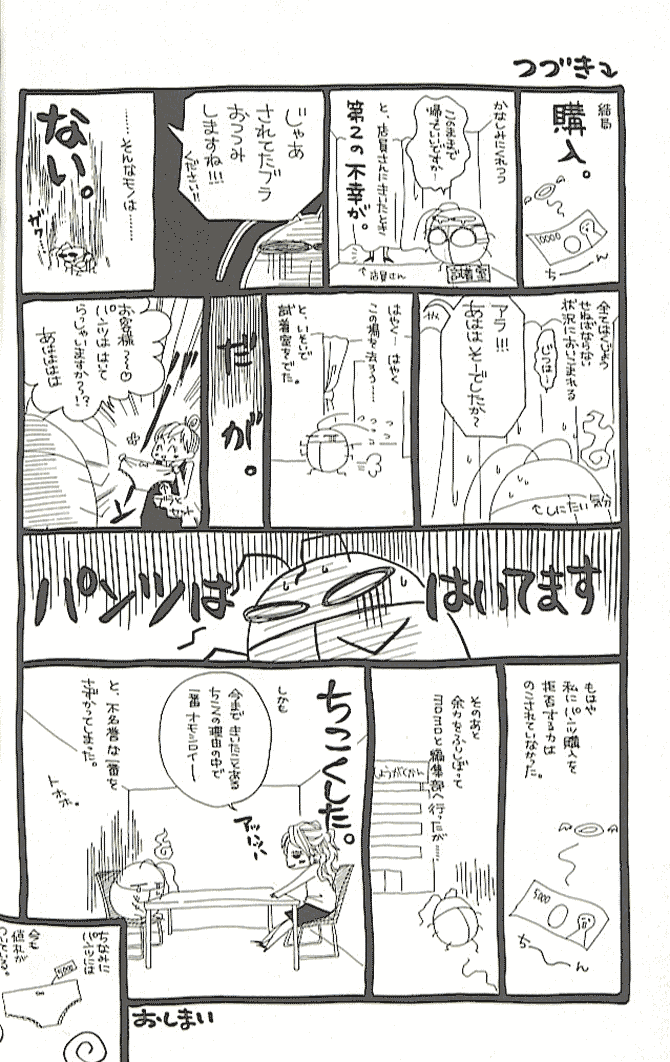 つづき
結局
購入。
10000
ちーん
かなしみにくれつつ
このままで
帰っていいですか?
と、店員さんにきいたとき
第2の不幸が。
店員さん
試着室
じゃあ
されてたブラ
おつつみ
しますね!!!
ください!!
……そんなモノは……
ない。
全てはくじょう
せねばならない
状況においこまれる
じつは…
アラ!!!
あははは そーでしたか〜
むしにたい気分
はやく… はやく
この場を去ろう……
と、いそいで
試着室をでた。
だが。
お客様〜〜♡
パンツは はいて
らっしゃいますか〜!?
あはははは
パンツは
はいてます
もはや
私にパンツ購入を
拒否する力は
のこされていなかった。
5000
ちーん
そのあと
余力をふりしぼって
ヨロヨロと編集部へ行ったが……
しょうがくかん
ちこくした。
しかも
今まできいたことある
ちこくの理由の中で
一番オモシロイー
アッハッハッ
と、不名誉な一番を
さずかってしまった。
トホホ。
ちなみに
パンツには
今も
値札が
ついている。
おしまい